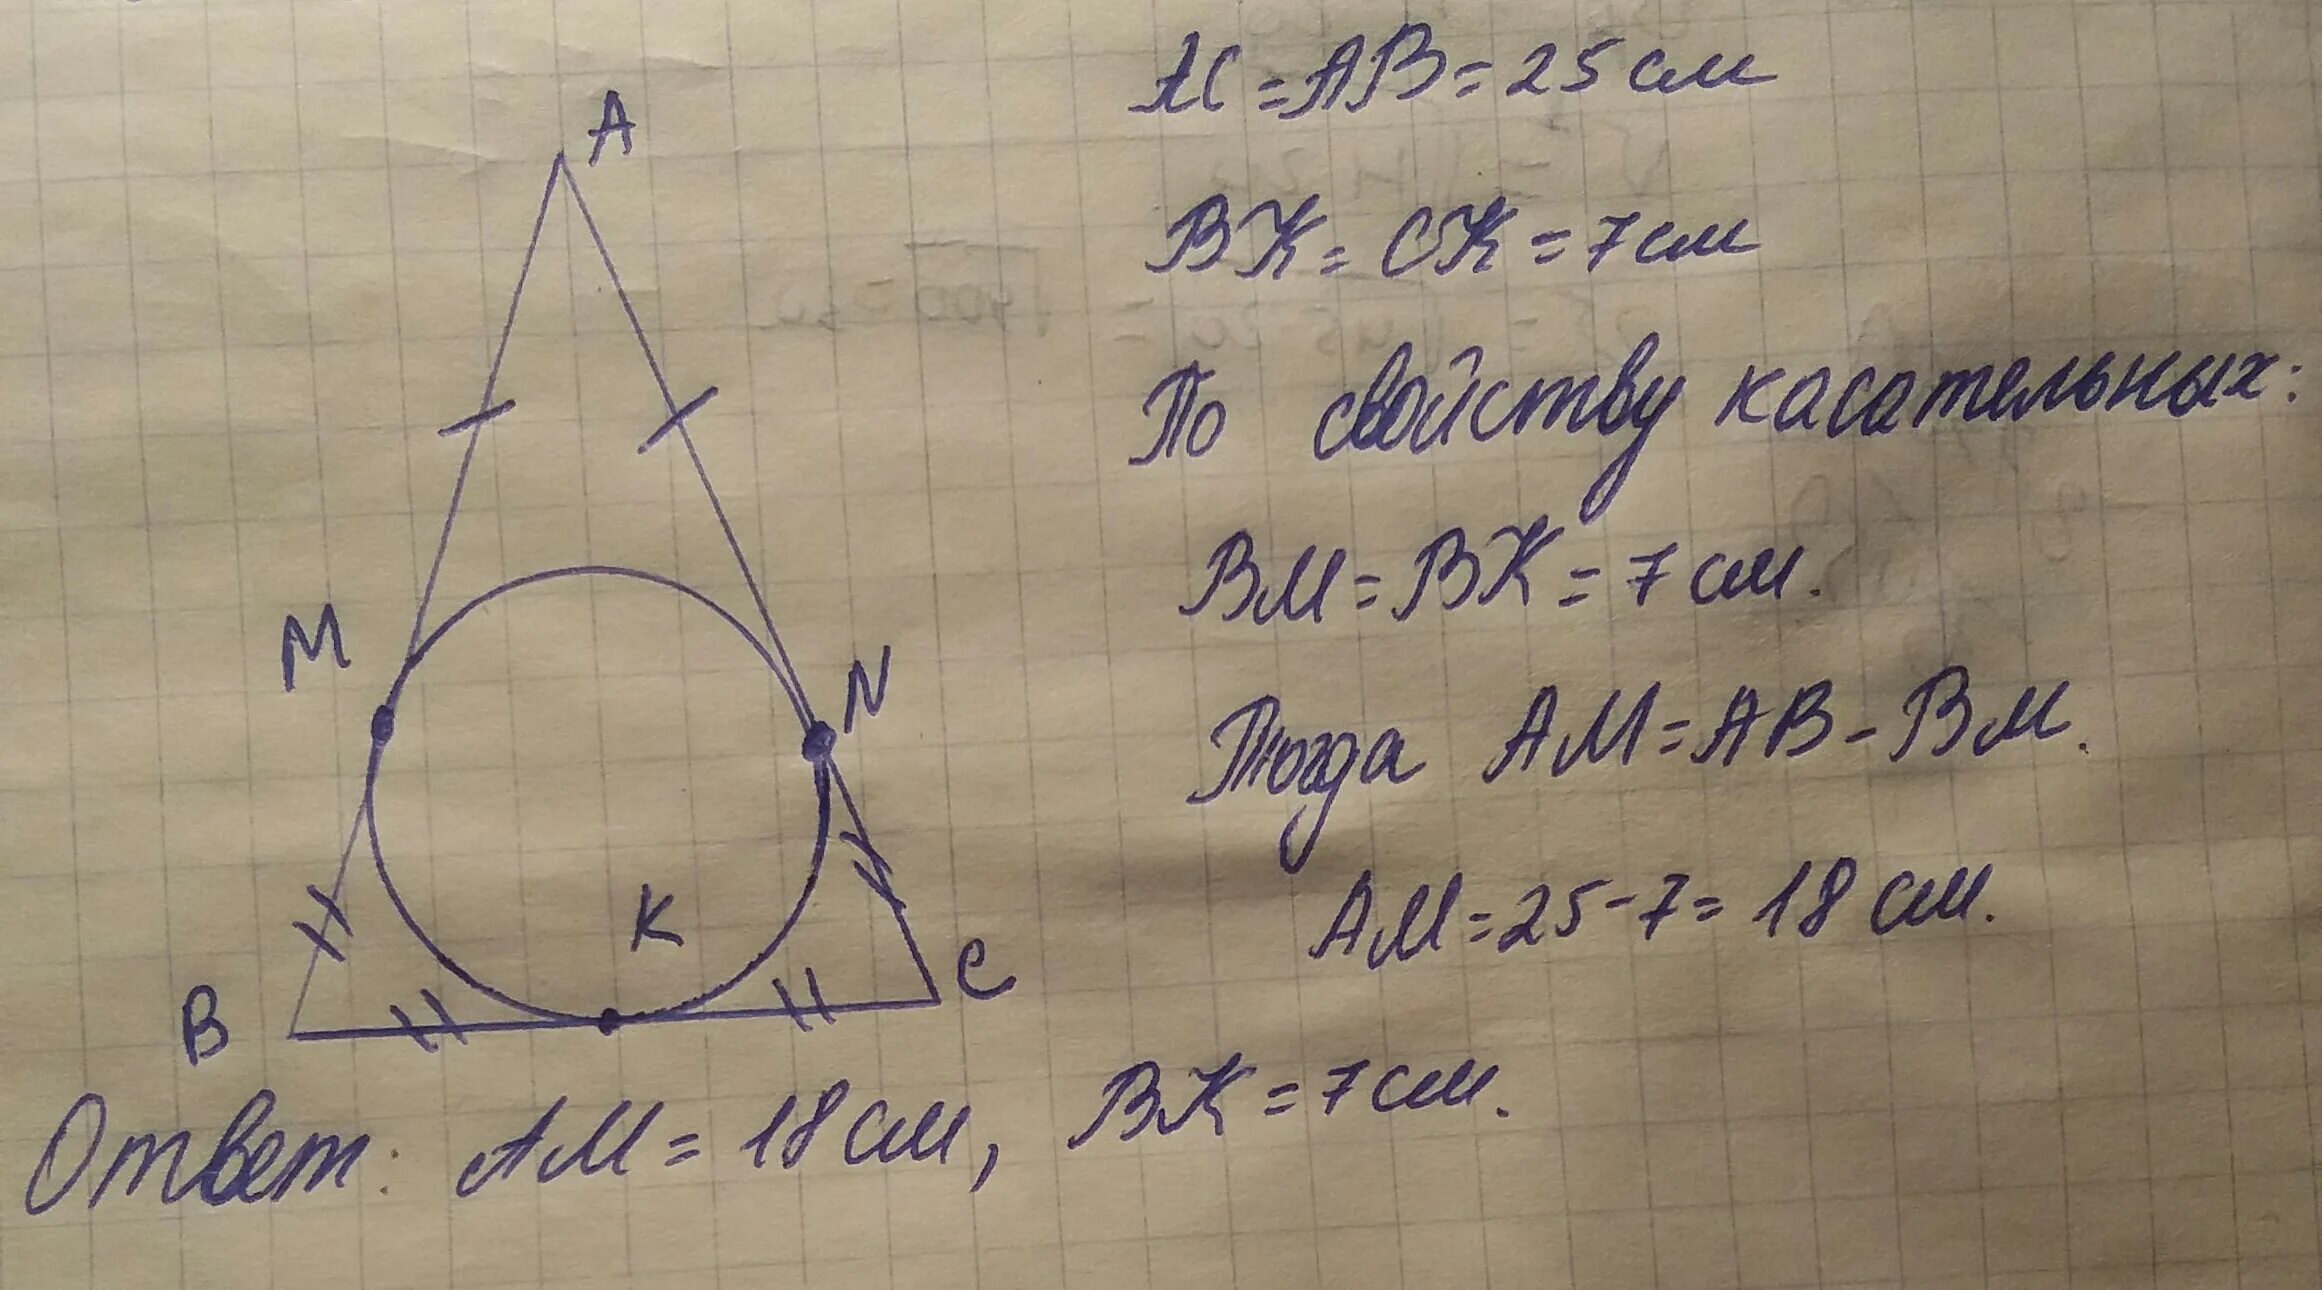 A
AC = AB = 25 см
BK = CK = 7 см
По свойству касательных:
BM = BK = 7 см.
M
N
Тогда AM = AB - BM.
K
AM = 25 - 7 = 18 см.
B
C
Ответ: AM = 18 см, BK = 7 см.